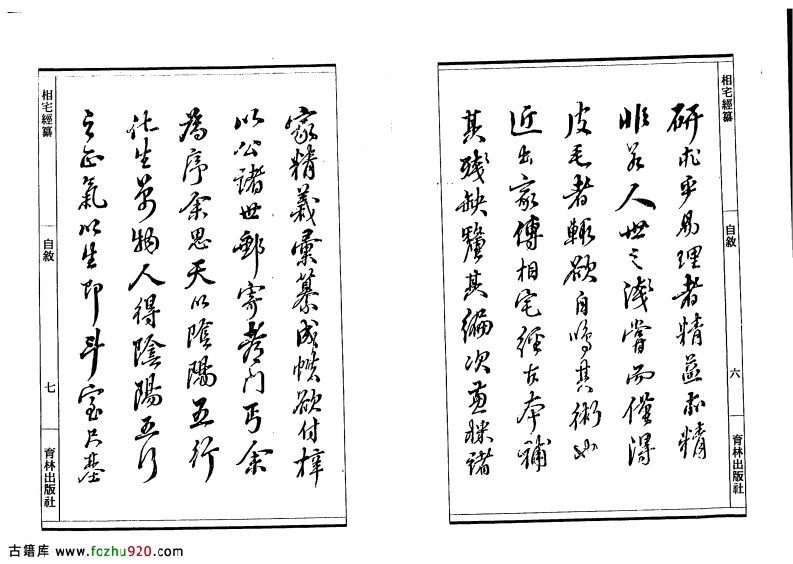 相宅經纂
自敘
六
育林出版社
研求乎易理者精益求精
非若人世之淺嘗而僅得
皮毛者輒欲自鳴其術也
近出家傳相宅經古本補
其殘缺釐其編次兼採諸
家精義彙纂成帙欲付梓
以公諸世郵寄都門丐余
為序余思天以陰陽五行
化生萬物人得陰陽五行
之正氣以生即斗室尺基
相宅經纂
自敘
七
育林出版社
古籍库 www.fozhu920.com